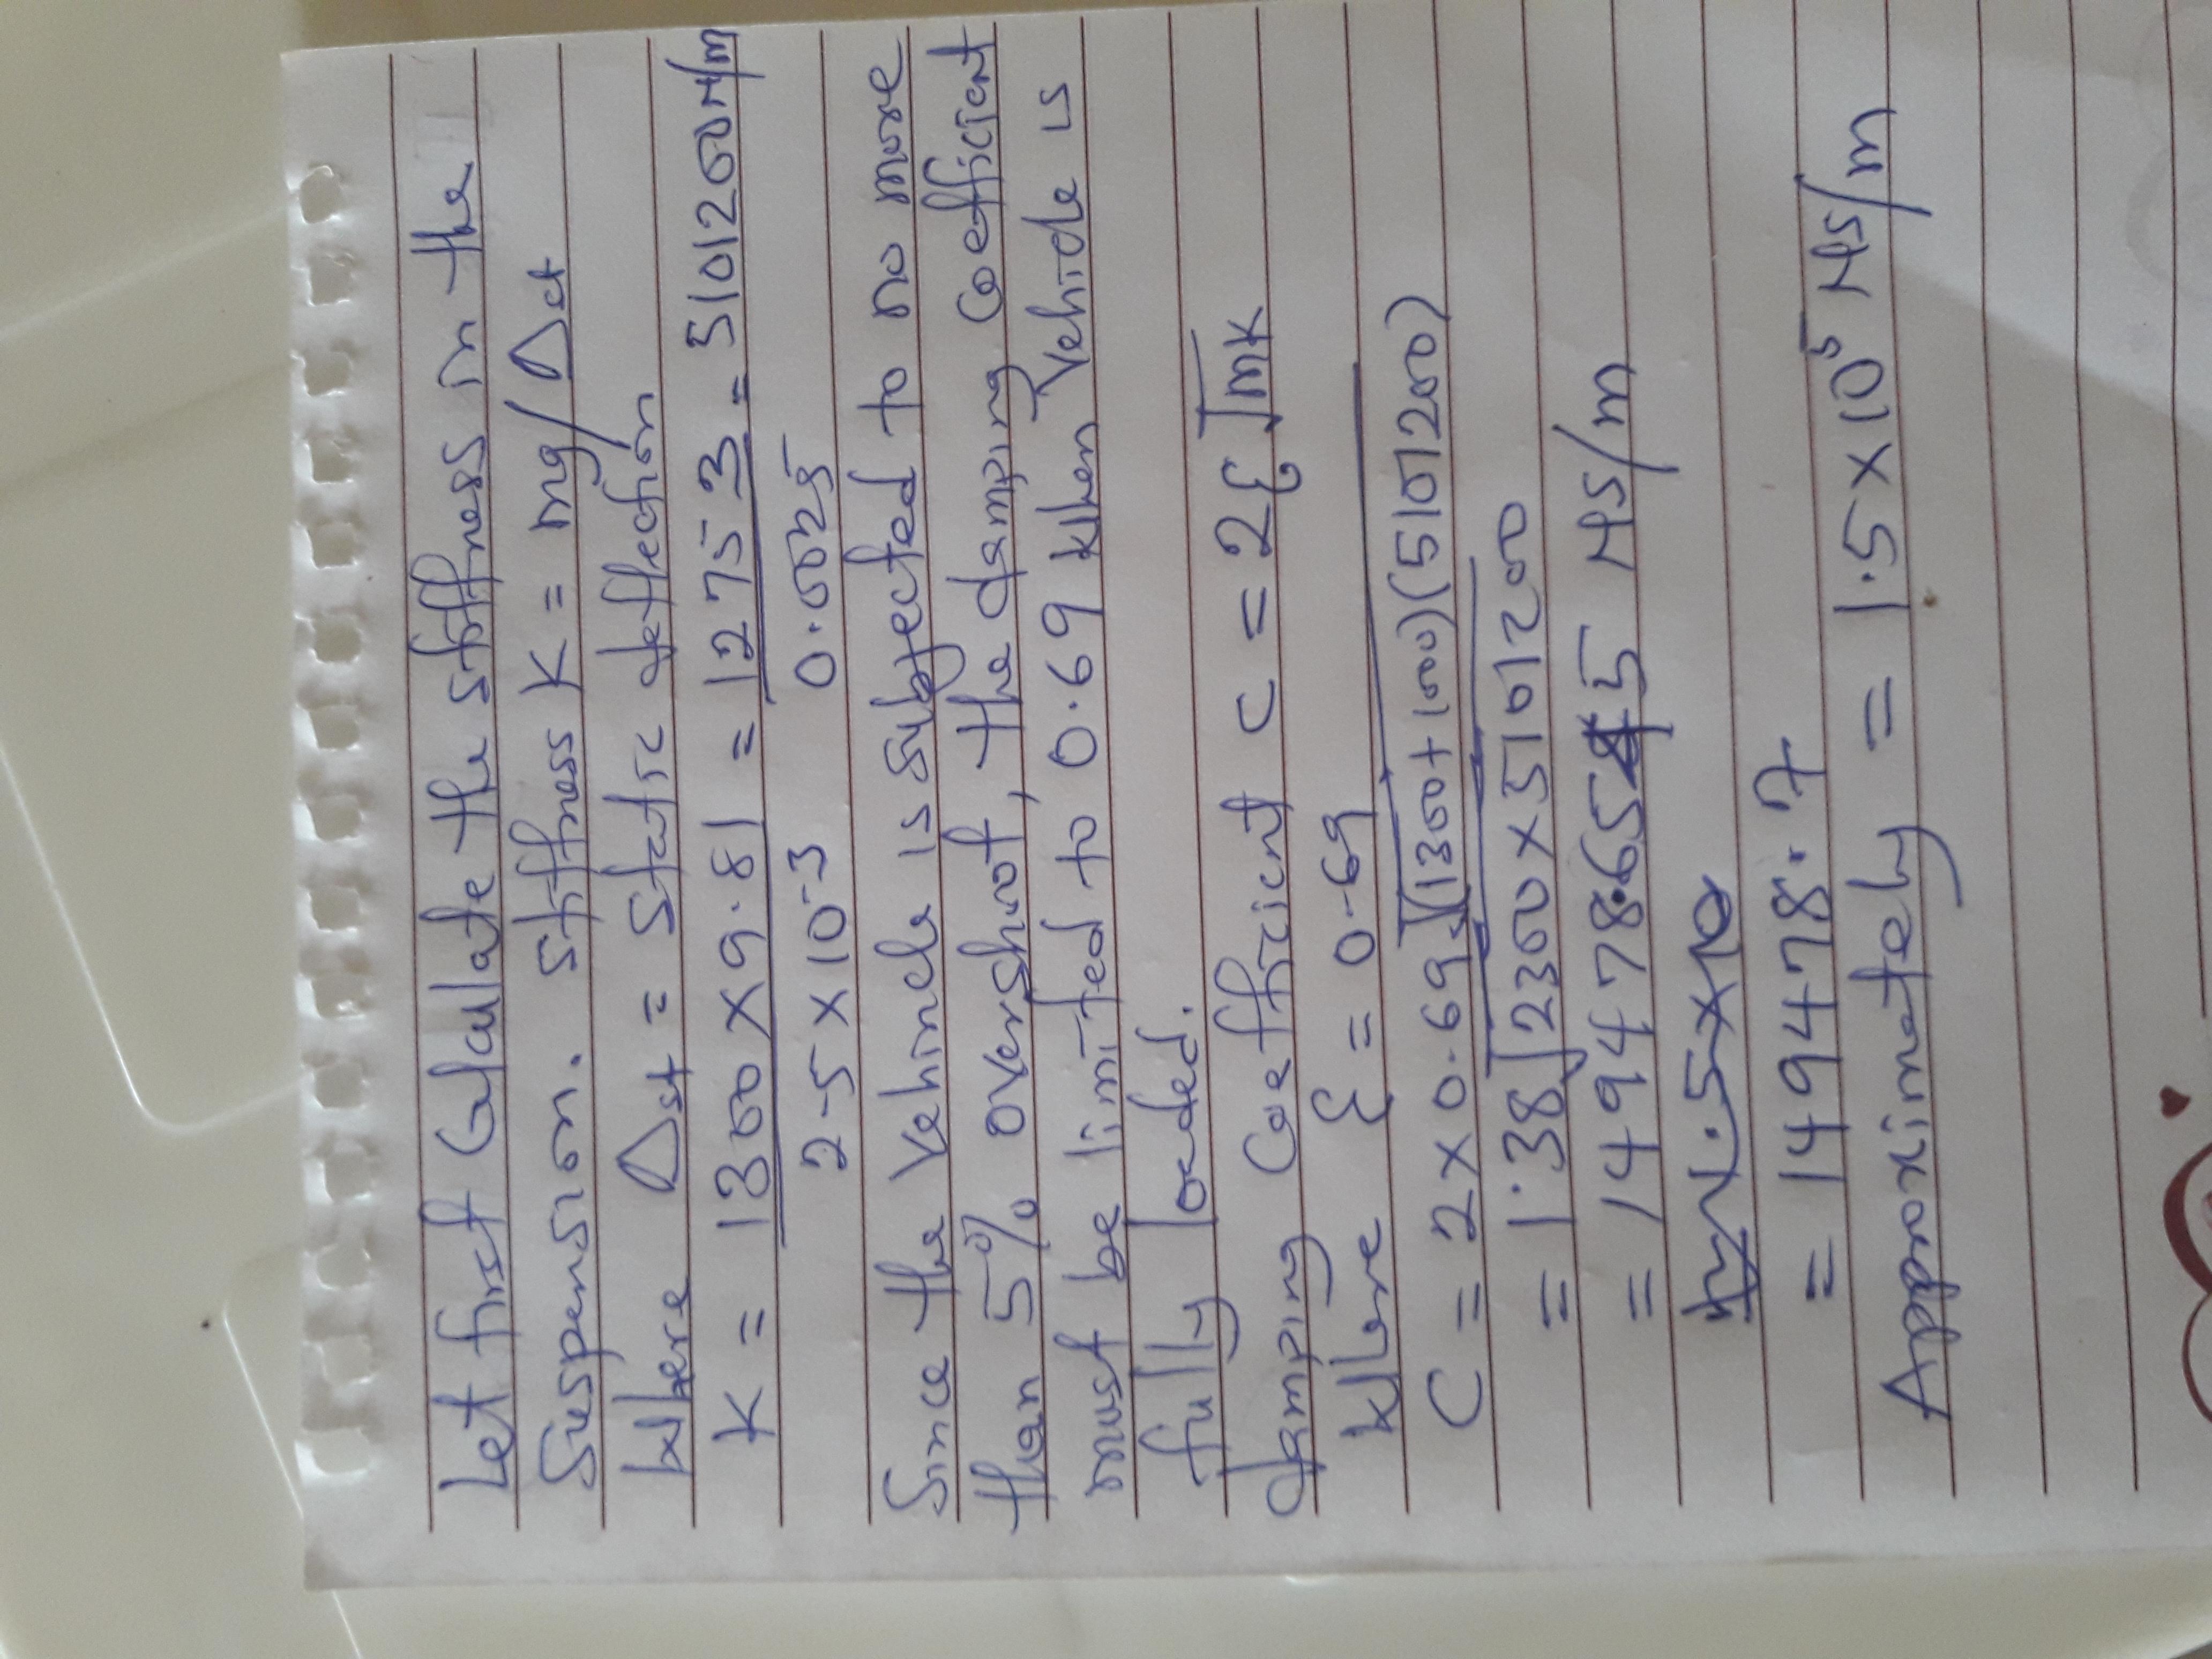 Let first Calculate the stiffness in the
Suspension. Stiffness K = mg/Δst
Where Δst = Static deflection
K = 1300 x 9.81 / 2.5 x 10^-3 = 12753 / 0.0025 = 5101200 N/m
Since the Vehincle is Subjected to no more
than 5% overshot, the damping Coefficient
must be limited to 0.69 When Vehicle is
fully loaded.
damping Coefficient C = 2ξ√mK
Where ξ = 0.69
C = 2 x 0.69√(1300+1000)(5101200)
= 1.38√2300 x 5101200
= 149478.655 Ns/m
= 149478.7
Approximately = 1.5 x 10^5 Ns/m